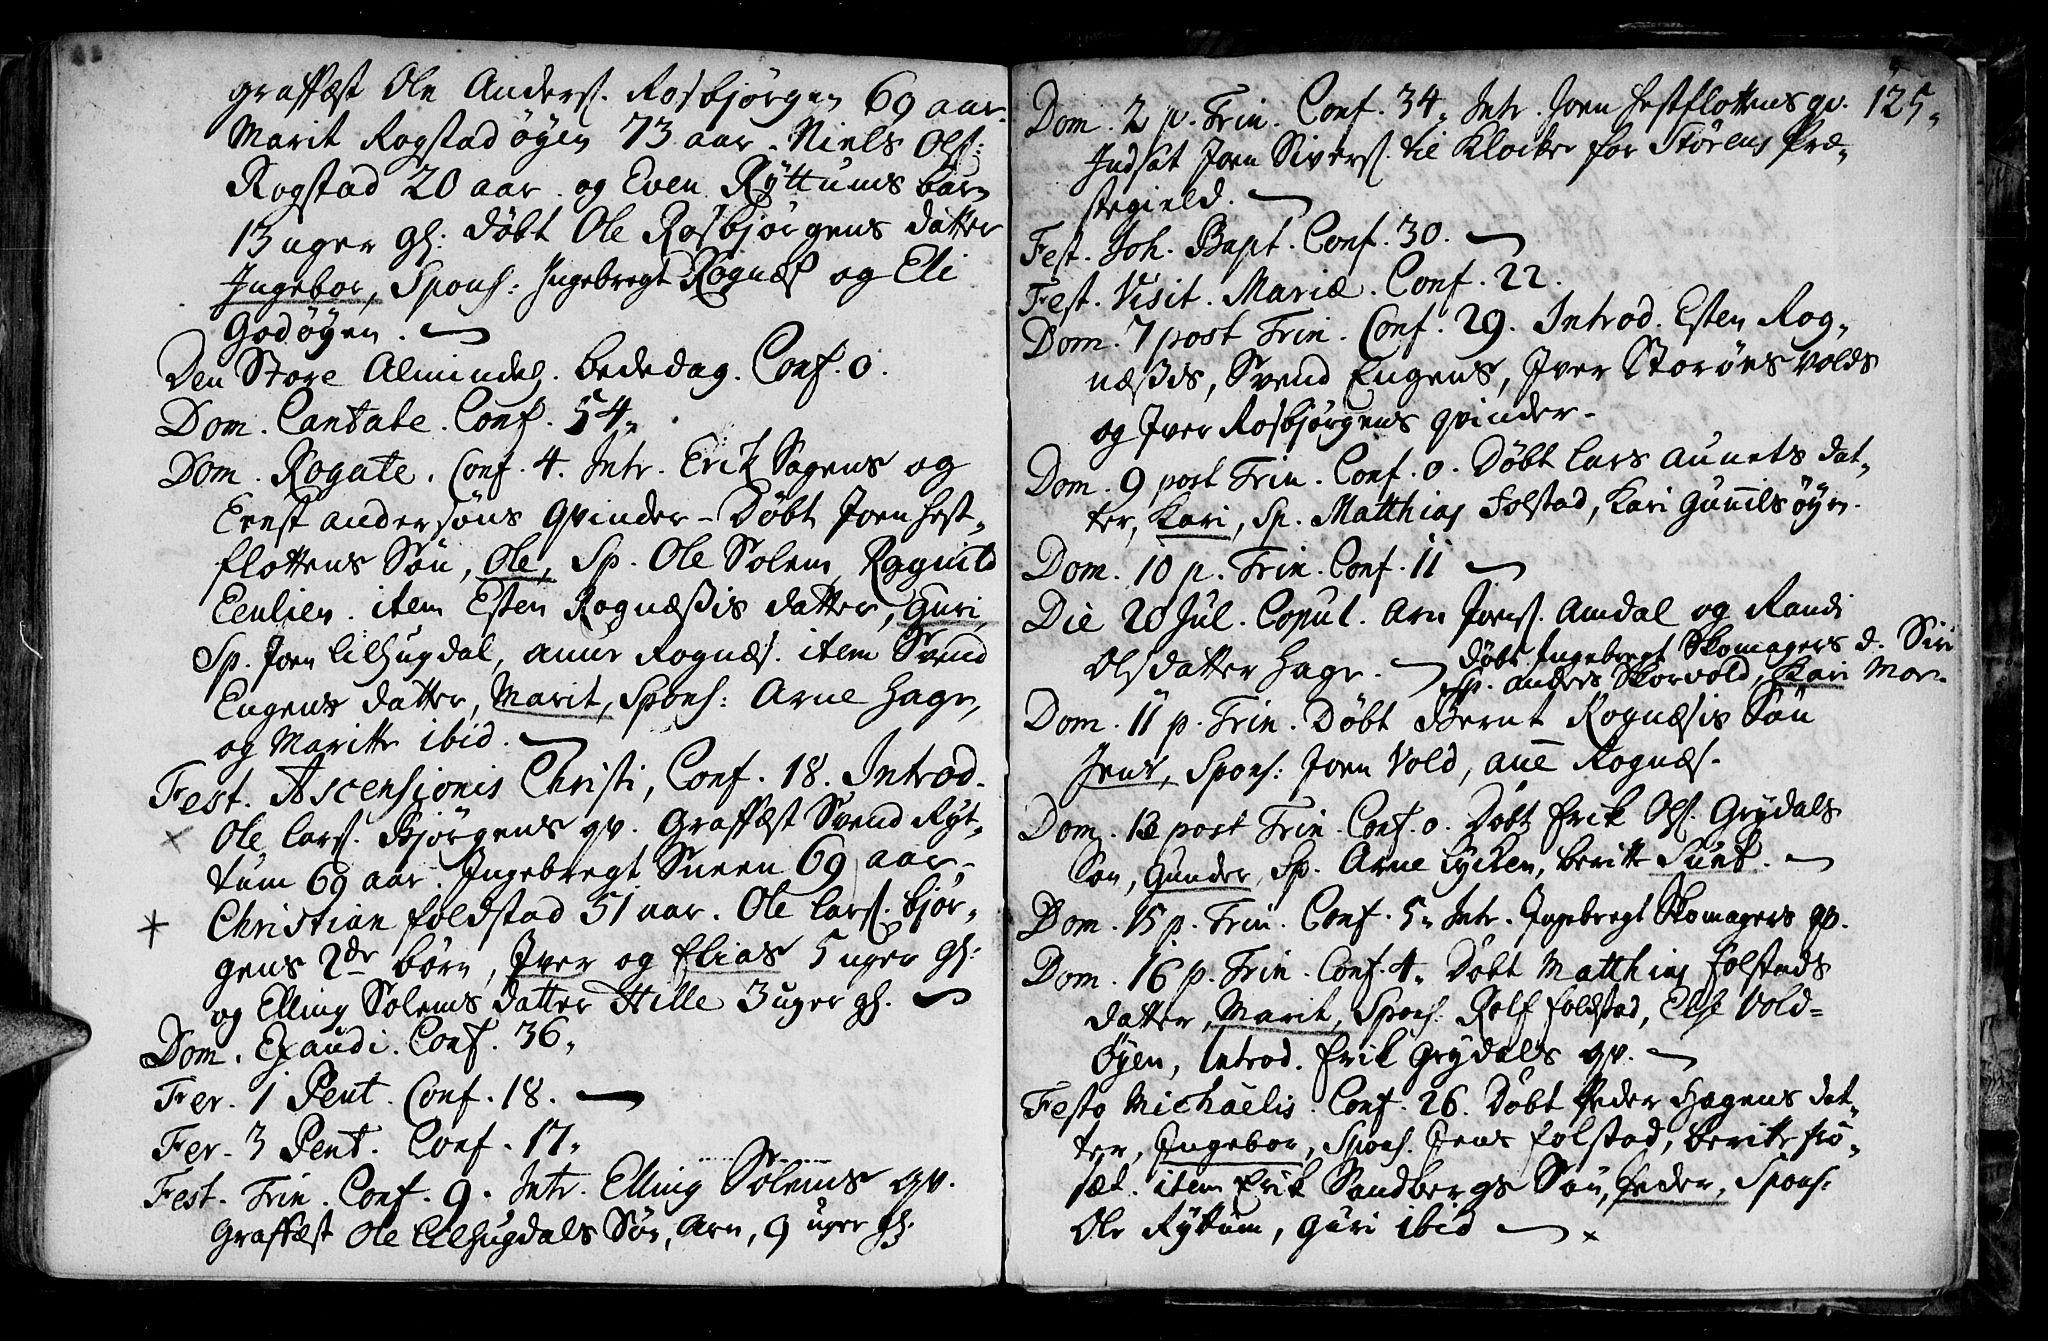 graffæst Ole Anders. Rosbjørgen 69 aar.
Marit Rogstadøyen 73 aar. Niels Ols:
Rogstad 20 aar. og Even Ryttums barn
13 uger gl: døbt Ole Rosbjørgens datter
Ingebor, Spons: Ingebregt Rognæs og Eli
Godøyen.
Den Store Almindel. bededag. Conf. 0.
Dom. Cantate. Conf. 54.
Dom. Rogate. Conf. 4. Intr. Erik Sagens og
Ernst andersøns qvinder - Døbt Joen hest-
flottens Søn, Ole, Sp. Ole Solem, Ragnild
Eenlien. item Esten Rognæssis datter, Guri,
Sp. Joen Lilhugdal, anne Rognæs. item Svend
Engens datter, Marit, Spons: Arne Hage,
og Maritte ibid.
Fest. Ascensionis Christi, Conf. 18. Introd.
Ole Lars. Bjørgens qv. Graffæst Svend Ryt-
tum 69 aar. Ingebregt Sneen 69 aar -
Christian foldstad 51 aar. Ole Lars. bjør-
gens 2de børn, Iver og Elias 5 uger gl:
og Elling Solems datter Kille 3 uger gl.
Dom. Exaudi. Conf. 36.
Fer. 1 Pent. Conf. 18.
Fer. 3 Pent. Conf. 17.
Fest. Trin. Conf. 9. Intr. Elling Solems qv.
Graffæst Ole Lilhugdals Søn, Arn, 9 uger gl:
125.
Dom. 2 p. Trin. Conf. 34. Intr. Joen hestflottens qv.
Indsat Joen Sivers. til Klocker for Størens Præ-
stegield.
Fest. Joh. Bapt. Conf. 30.
Fest. Visit. Mariæ. Conf. 22.
Dom. 7 post Trin. Conf. 29. Introd. Esten Rog-
næssis, Svend Engens, Iver Storøens volds
og Iver Rosbjørgens qvinder -
Dom. 9 post Trin. Conf. 0. Døbt Lars aunets dat-
ter, Kari, Sp. Matthias Folstad, Kari Gunnilsøyen.
Dom. 10 p. Trin. Conf. 11
Die 20 Jul. Copul. Arn Joens. Amdal og Randi
Olsdatter Hage.
døbt Ingebregt Skomagers d. Siri
Sp. anders Skorvold, Kari Mor-
Dom. 11 p. Trin. Døbt Bernt Rognæsis Søn
Jens, Spons: Joen Vold, ane Rognæs.
Dom. 13 post Trin. Conf. 0. Døbt Erik Ols. Grydals
Søn, Gunder, Sp. Arne Lycken, beritte Sunt.
Dom. 15 p. Trin. Conf. 5. Intr. Ingebregt Skomagers qv.
Dom. 16 p. Trin. Conf. 4. Døbt Matthias folstads
datter, Marit, Spons: Rolf foldstad, Else Vold=
øyen, Introd. Erik Grydals qv.
Festo Michaëlis. Conf. 26. Døbt Peder Hagens dat-
ter, Ingebor, Spons. Jens folstad, beritte frø-
sæt. item Erik Sandbergs Søn, Peder, Spons:
Ole Ryttum, Guri ibid